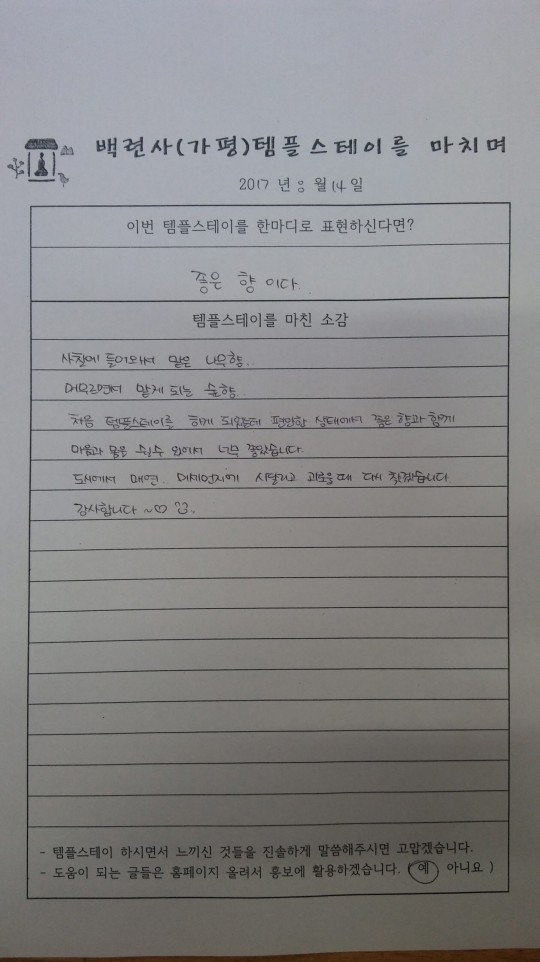 백련사(가평)템플스테이를 마치며
2017 년 8 월 14 일
이번 템플스테이를 한마디로 표현하신다면?
좋은 향 이다..
템플스테이를 마친 소감
사찰에 들어와서 맡은 나무향..
머무르면서 맡게 되는 숲향..
처음 템플스테이를 하게 되었는데 편안한 상태에서 좋은 향과 함께
마음과 몸을 쉴수 있어서 너무 좋았습니다.
도시에서 매연, 미세먼지에 시달리고 괴로울때 다시 찾겠습니다
감사합니다 ~♡
- 템플스테이 하시면서 느끼신 것들을 진솔하게 말씀해주시면 고맙겠습니다.
- 도움이 되는 글들은 홈페이지 올려서 홍보에 활용하겠습니다. ( 예 아니요 )